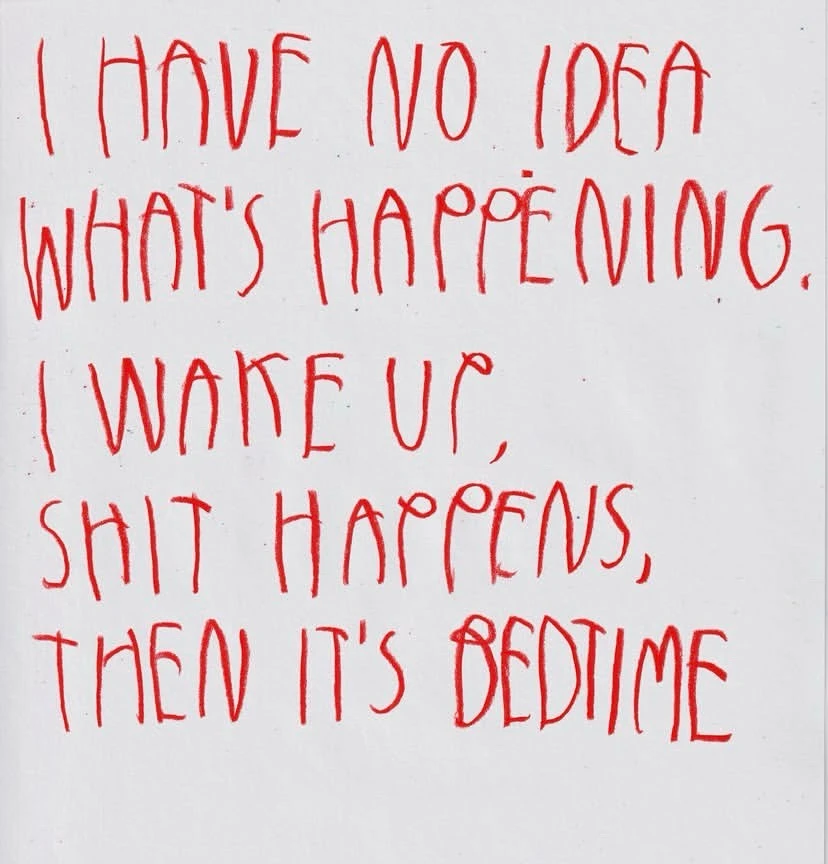 I HAVE NO IDEA
WHAT'S HAPPENING.
I WAKE UP,
SHIT HAPPENS,
THEN IT'S BEDTIME